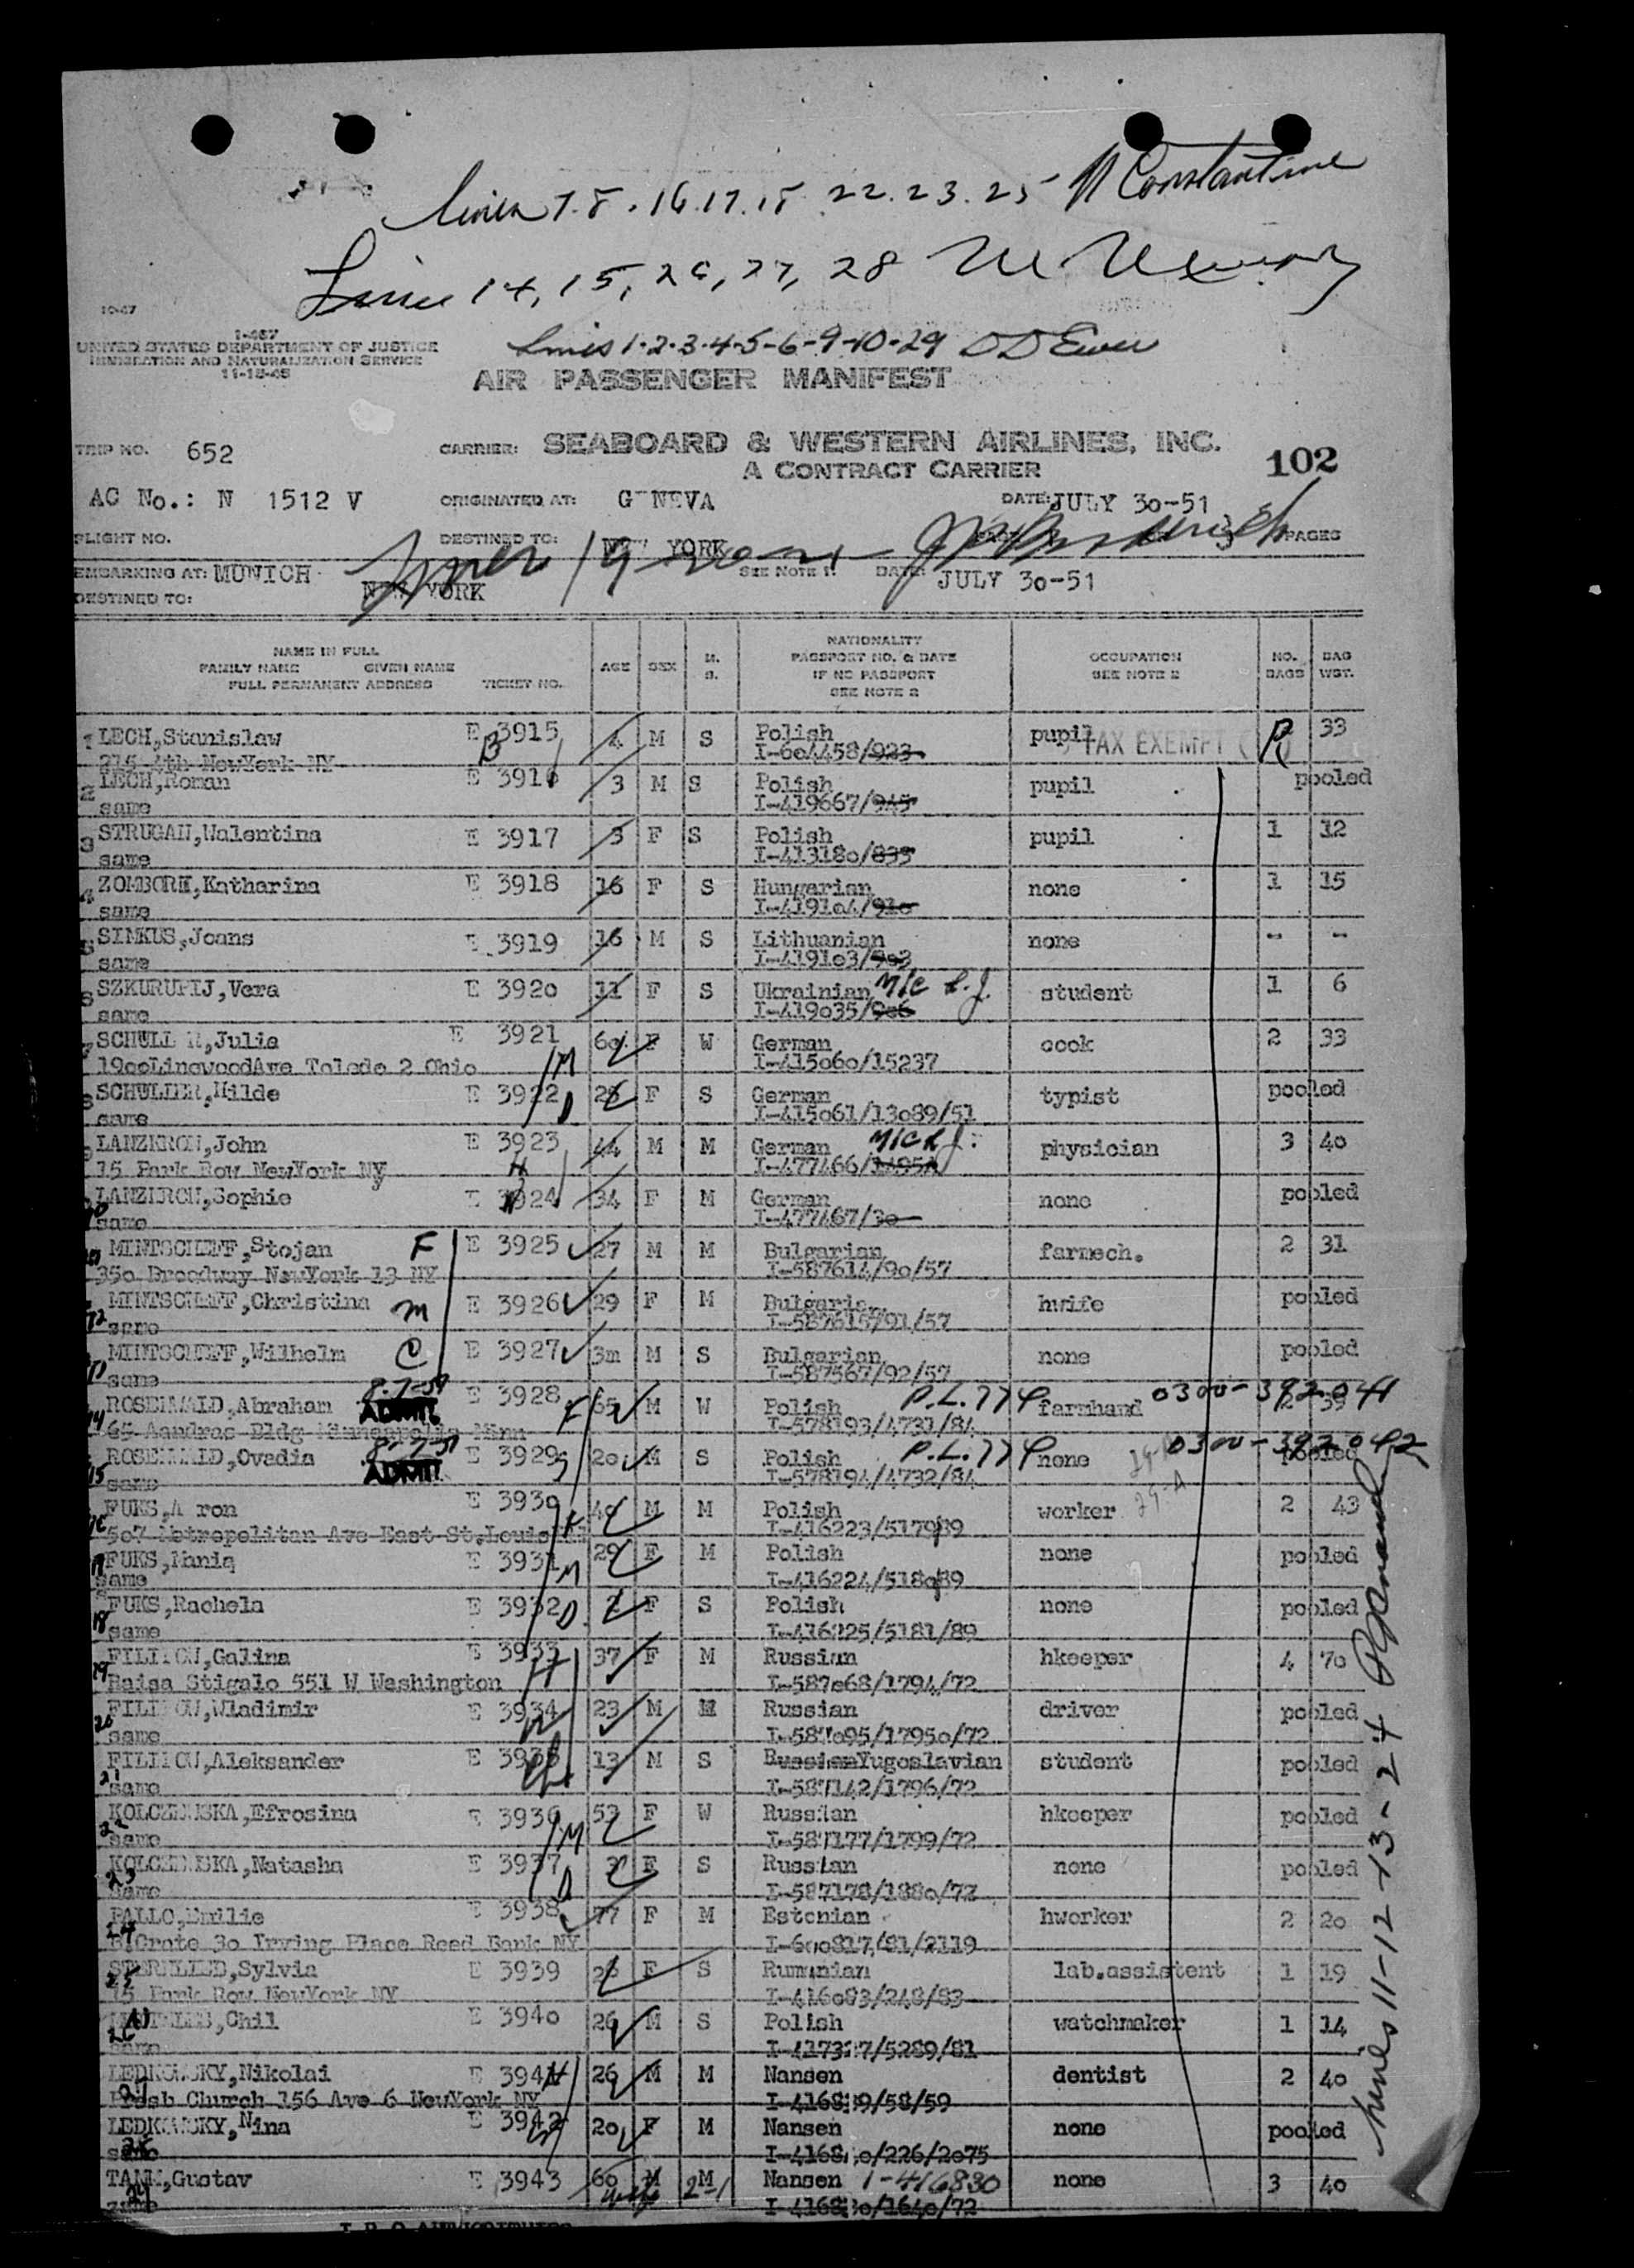 Lines 7.8.16.17.18 22.23.25 N Constantine
Lines 14, 15, 26, 27, 28
10-47
I-467
UNITED STATES DEPARTMENT OF JUSTICE
IMMIGRATION AND NATURALIZATION SERVICE
11-18-46
Lines 1-2-3-4-5-6-9-10-29
AIR PASSENGER MANIFEST
TRIP NO. 652 CARRIER: SEABOARD & WESTERN AIRLINES, INC. 102
A CONTRACT CARRIER
AC No.: N 1512 V ORIGINATED AT: G NEVA DATE: JULY 30-51
FLIGHT NO. DESTINED TO: NEW YORK 3 PAGES
EMBARKING AT: MUNICH SEE NOTE 1. DATE: JULY 30-51
DESTINED TO: NEW YORK
NAME IN FULL
FAMILY NAME GIVEN NAME
FULL PERMANENT ADDRESS TICKET NO. AGE SEX M. S. NATIONALITY PASSPORT NO. & DATE IF NO PASSPORT SEE NOTE 2 OCCUPATION SEE NOTE 2 NO. BAGS BAG WGT.
1 LECH,Stanislaw E 3915 4 M S Polish pupil TAX EXEMPT 33
215 4th NewYork NY I-604458/923
2 LECH,Roman E 3916 3 M S Polish pupil pooled
same I-419667/945
3 STRUGAN,Walentina E 3917 3 F S Polish pupil 1 12
same I-413180/835
4 ZOMBORI,Katharina E 3918 16 F S Hungarian none 1 15
same I-419104/910
5 SIMKUS,Joans E 3919 16 M S Lithuanian none -- --
same I-419103/903
6 SZKURUPIJ,Vera E 3920 11 F S Ukrainian student 1 6
same I-419035/906
7 SCHULL R,Julie E 3921 60 F W German cook 2 33
1900LinewoodAve Toledo 2 Ohio I-415060/15237
8 SCHULLER,Hilde E 3922 F S German typist pooled
same I-415061/13089/51
9 LANZKRON,John E 3923 44 M M German physician 3 40
15 Park Row NewYork NY I-477466/
10 LANZKRON,Sophie E 3924 34 F M German none pooled
same I-477467/30
11 MINTSCHEFF,Stojan F E 3925 27 M M Bulgarian farmech. 2 31
350 Broadway NewYork 13 NY I-587614/90/57
12 MINTSCHEFF,Christina M E 3926 29 F M Bulgarian hwife pooled
same I-587615/91/57
13 MINTSCHEFF,Wilhelm C E 3927 3m M S Bulgarian none pooled
same I-587567/92/57
14 ROSENWALD,Abraham 8-7-51 ADMIT. E 3928 F 65 M W Polish P.L.774 farmhand 0300-392041
65 Aandras Bldg Minneapolis Minn I-578193/4731/84
15 ROSENWALD,Ovadia 8-7-51 ADMIT E 3929 S 20 M S Polish P.L.774 none 0300-392042 pooled
same I-578194/4732/84
16 FUKS,A ron E 3930 M M Polish worker 2 43
507 Metropolitan Ave East St.Louis I-416223/
17 FUKS,Maniq E 3931 M 29 F M Polish none pooled
same I-416224/
18 FUKS,Rachela E 3932 D F S Polish none pooled
same I-416225/5181/89
19 FILI OW,Galina E 3933 37 F M Russian hkeeper 4 70
Raisa Stigalo 551 W Washington I-587068/1794/72
20 FILI OW,Wladimir E 3934 23 M M Russian driver pooled
same I-587095/17950/72
21 FILI OW,Aleksander E 3935 13 M S RussianYugoslavian student pooled
same I-587142/1796/72
22 KOLCZENSKA,Efrosina E 3936 M F W Russian hkeeper pooled
same I-587177/1799/72
23 KOLCZENSKA,Natasha E 3937 D F S Russian none pooled
same I-587178/1880/72
24 PALLO,Emilie E 3938 77 F M Estonian hworker 2 20
Crate 30 Irving Place Reed Bank NY I-600817/81/2119
25 Sylvia E 3939 F S Rumanian lab.assistent 1 19
15 Park Row NewYork NY I-416083/248/83
26 Chil E 3940 26 M S Polish watchmaker 1 14
same /5289/81
27 LEDKOWSKY,Nikolai E 3941 H 26 M M Nansen dentist 2 40
Presb Church 156 Ave 6 NewYork NY /58/59
28 LEDKOWSKY,Nina E 3942 W 20 F M Nansen none pooled
same /226/2075
29 TANK,Gustav E 3943 60 M M Nansen 1-416830 none 3 40
same I-416830/1640/72
lines 11-12-13-24